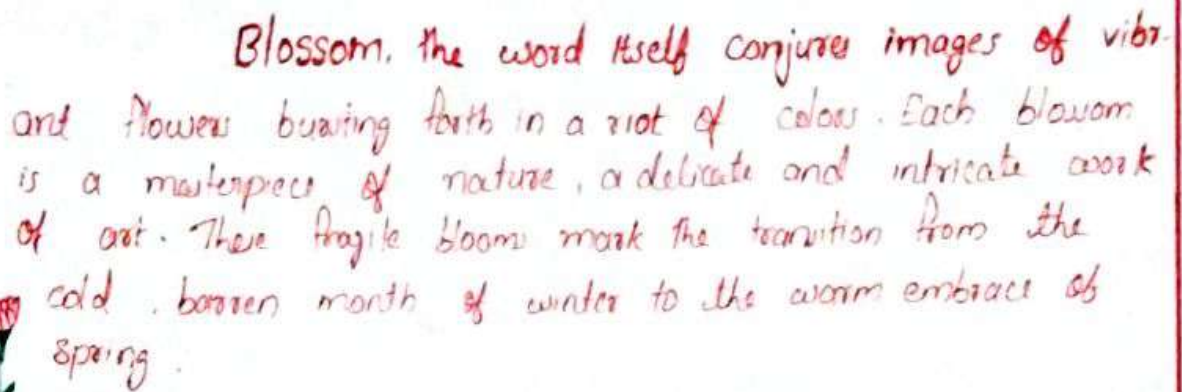 Blossom. the word itself conjures images of vibr-
ant flowers bursting forth in a riot of colors. Each blossom
is a masterpiece of nature, a delicate and intricate work
of art. These fragile blooms mark the transition from the
cold, barren month of winter to the warm embrace of
spring.